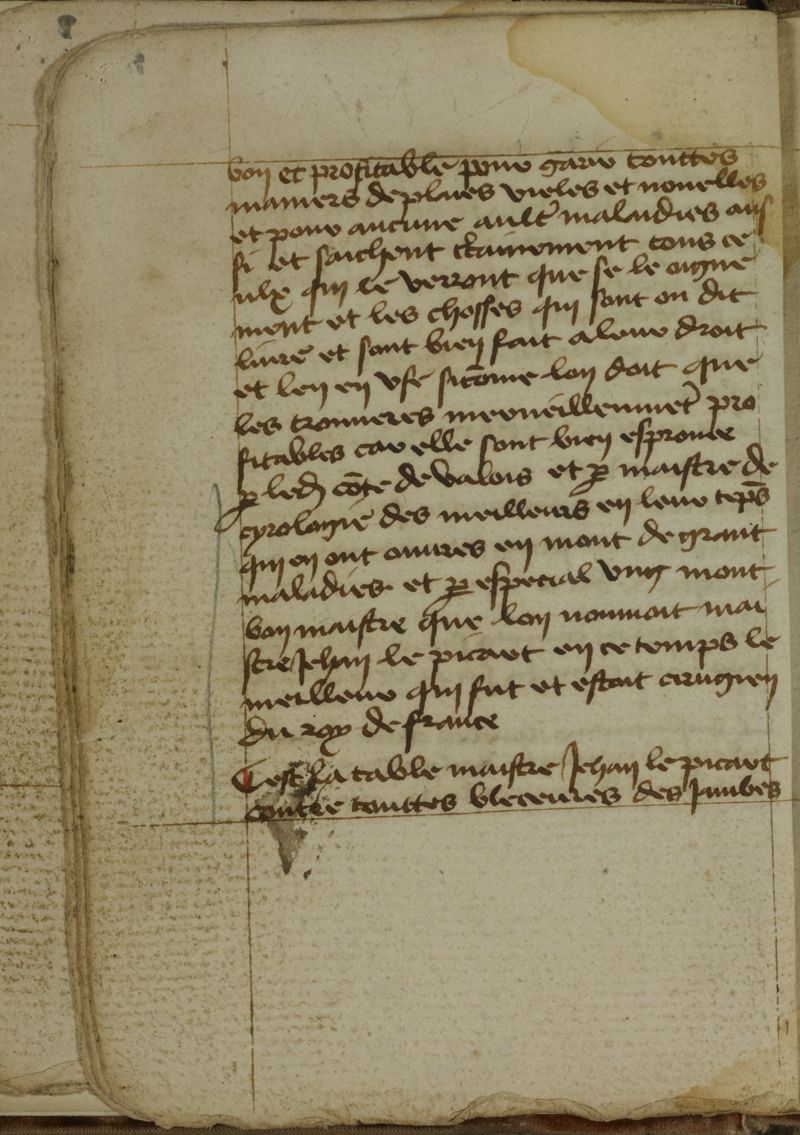 bon et proffitable pour garir touttes
maniers de plaies vieles et nouelles
et pour aucune ault' maladies aus
si et saichent c'tainement tous ce
ulx qui le verront que se le oigne
ment et les chosses qui sont ou dit
liure et sont bien fait a leur droit
et len en vse sicōme lon doit que
les trouueres merueilleumēt pro
fitables car elle sont bien esprouee
ꝑ led cōte de valois et ꝑ maistre de
cyrologie des meilleurs en leur tēps
qui en ont ouures en mont de grant
maladies et ꝑ especial vng mont
bon maistre que lon nonmoit mai
stre Jehan le picart en ce temps le
meilleur qui fut et estoit cirugien
du roy de france
Cest la table maistre Jehan le picart
contre touttes bleceures des Janbes